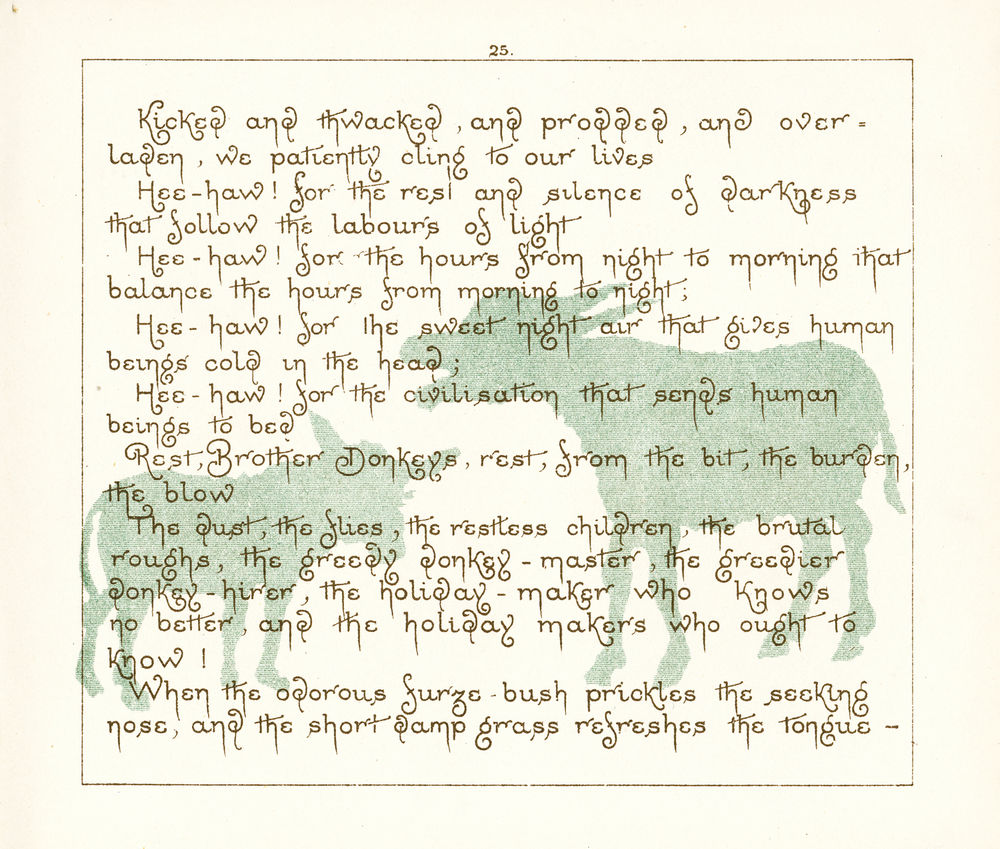 25.
Kicked and thwacked, and prodded, and over-
laden, we patiently cling to our lives
Hee-haw! for the rest and silence of darkness
that follow the labours of light
Hee-haw! for the hours from night to morning that
balance the hours from morning to night;
Hee-haw! for the sweet night air that gives human
beings cold in the head;
Hee-haw! for the civilisation that sends human
beings to bed
Rest, Brother Donkeys, rest, from the bit, the burden,
the blow
The dust, the flies, the restless children, the brutal
roughs, the greedy donkey-master, the greedier
donkey-hirer, the holiday-maker who knows
no better, and the holiday makers who ought to
know!
When the odorous furze-bush prickles the seeking
nose, and the short damp grass refreshes the tongue -